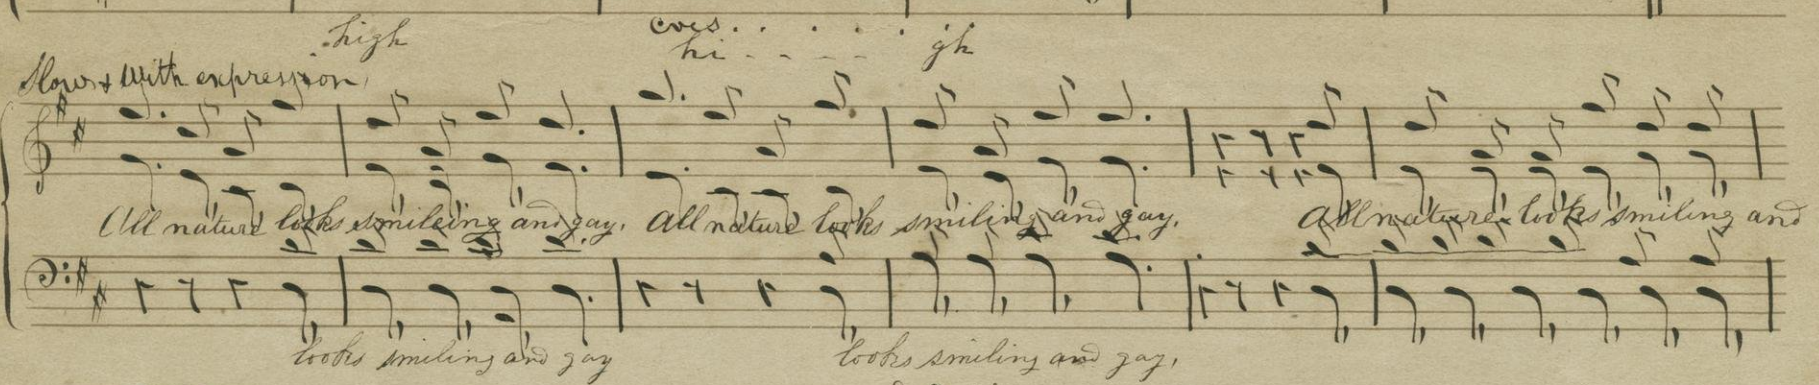 high eves. . . . . .
hi - - - - gh
Slow & With expression
All nature looks smileing and gay. All nature looks smiling and gay. All nature looks smiling and
looks smiling and gay looks smiling and gay,